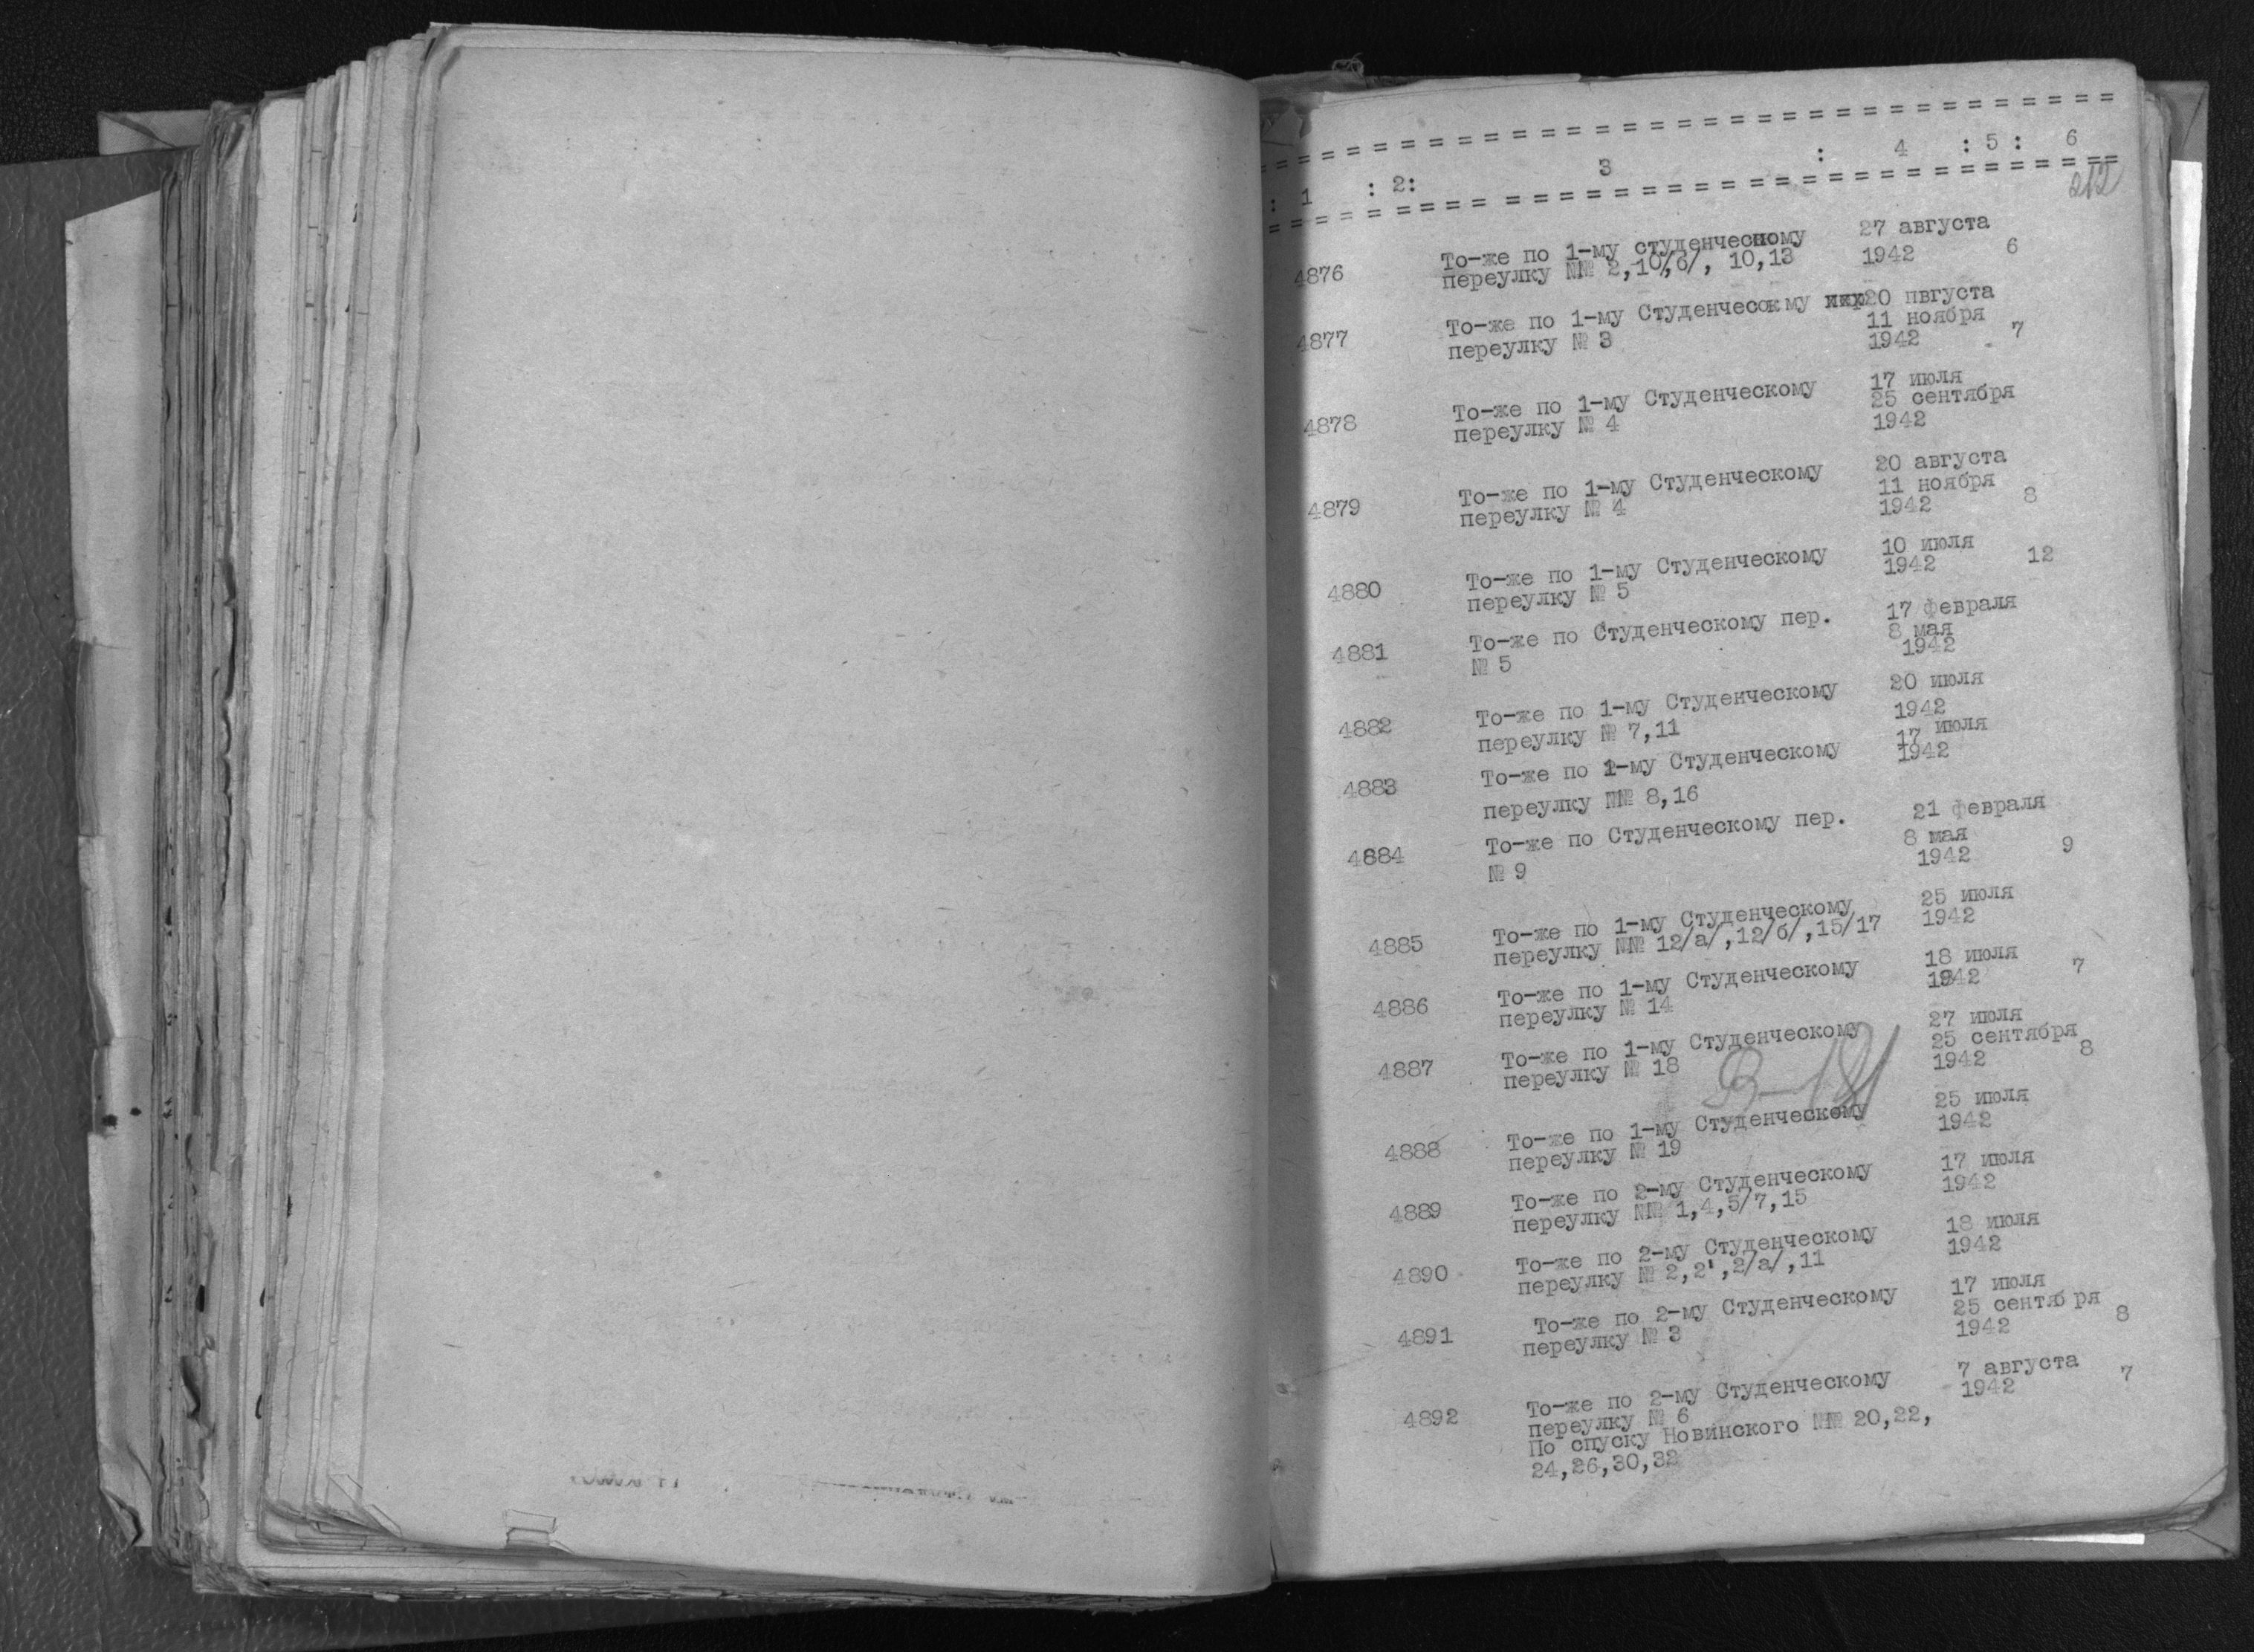 : 1 : 2: 3 : 4 : 5 : 6
212
4876 То-же по 1-му студенческому 27 августа
переулку №№ 2,10/б/, 10,13 1942 6
4877 То-же по 1-му Студенческому 20 пвгуста
переулку № 3 11 ноября
1942 7
4878 То-же по 1-му Студенческому 17 июля
переулку № 4 25 сентября
1942
4879 То-же по 1-му Студенческому 20 августа
переулку № 4 11 ноября
1942 8
4880 То-же по 1-му Студенческому 10 июля
переулку № 5 1942 12
4881 То-же по Студенческому пер. 17 февраля
№ 5 8 мая
1942
4882 То-же по 1-му Студенческому 20 июля
переулку № 7,11 1942
4883 То-же по 1-му Студенческому 17 июля
переулку №№ 8,16 1942
4884 То-же по Студенческому пер. 21 февраля
№ 9 8 мая
1942 9
4885 То-же по 1-му Студенческому 25 июля
переулку №№ 12/а/,12/б/,15/17 1942
4886 То-же по 1-му Студенческому 18 июля
переулку № 14 1942 7
4887 То-же по 1-му Студенческому 27 июля
переулку № 18 25 сентября
1942 8
4888 То-же по 1-му Студенческому 25 июля
переулку № 19 1942
4889 То-же по 2-му Студенческому 17 июля
переулку №№ 1,4,5/7,15 1942
4890 То-же по 2-му Студенческому 18 июля
переулку № 2,2',2/а/,11 1942
4891 То-же по 2-му Студенческому 17 июля
переулку № 3 25 сентября
1942 8
4892 То-же по 2-му Студенческому 7 августа
переулку № 6 1942 7
По спуску Новинского №№ 20,22,
24,26,30,32